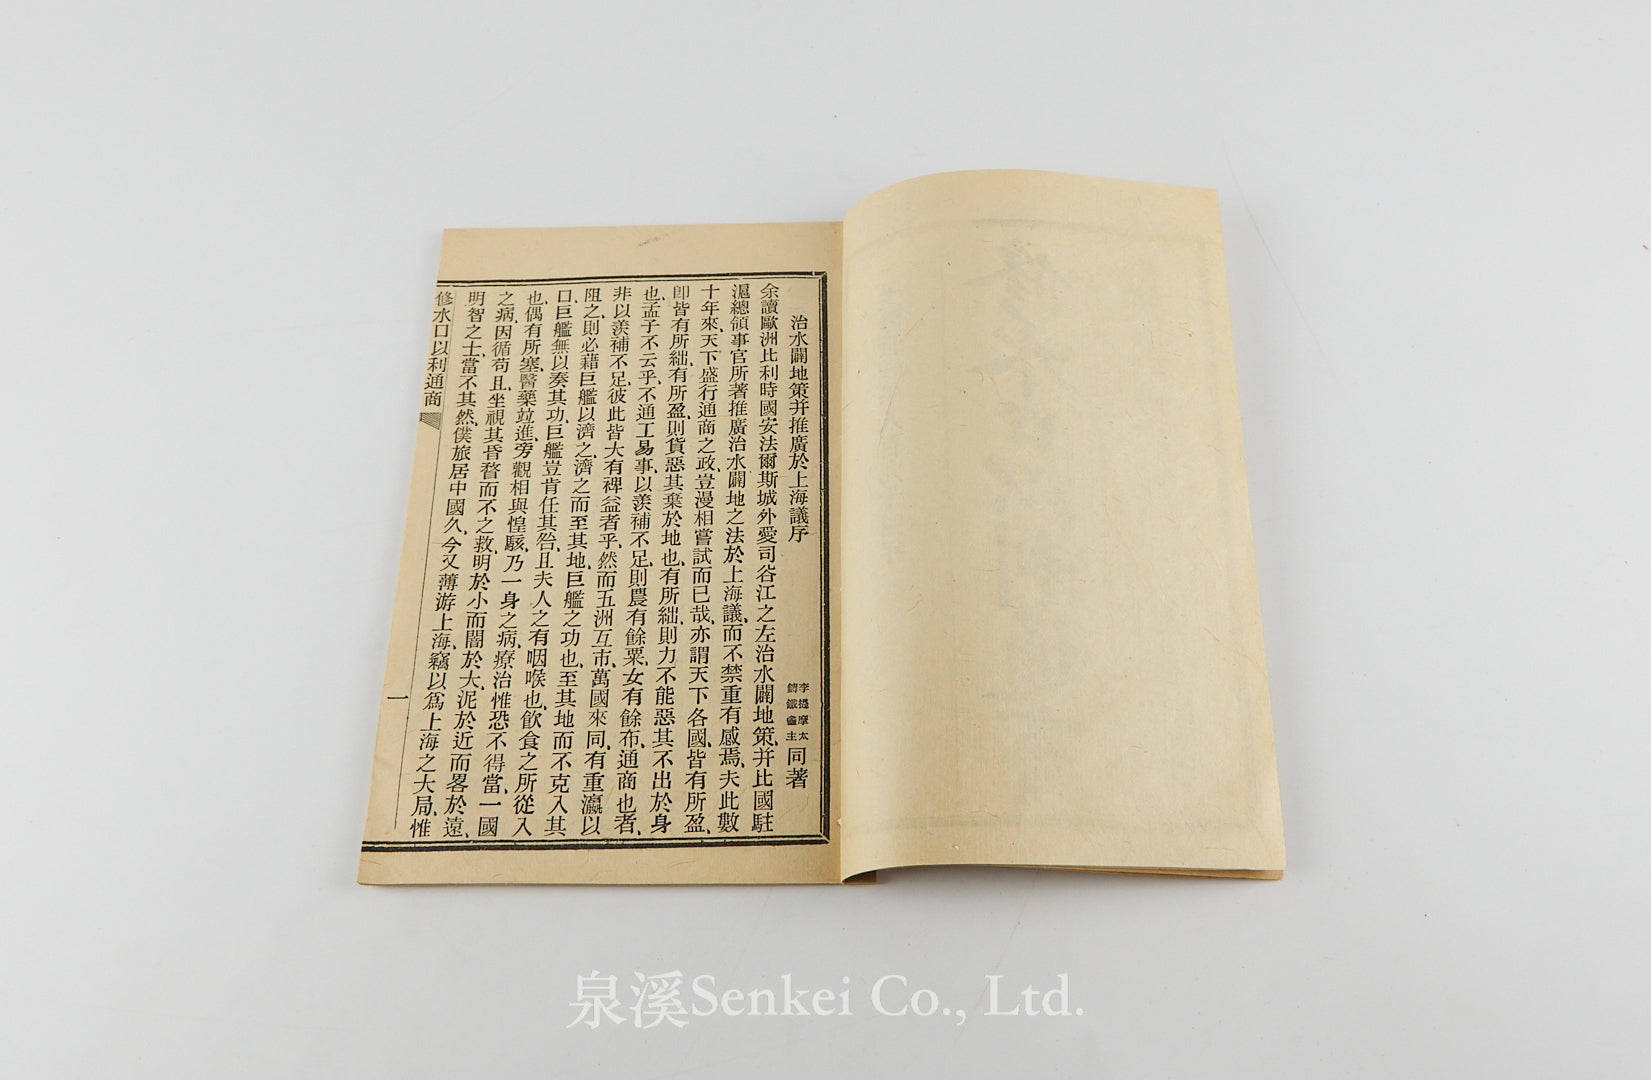 治水闢地策并推廣於上海議序
李提摩太
鑄鐵盦主
同著
余讀歐洲比利時國安法爾斯城外愛司谷江之左治水闢地策、并比國駐
滬總領事官所著推廣治水闢地之法於上海議、而不禁重有感焉、夫此數
十年來、天下盛行通商之政、豈漫相嘗試而已哉、亦謂天下各國、皆有所盈、
卽皆有所絀、有所盈、則貨惡其棄於地也、有所絀、則力不能惡其不出於身
也、孟子不云乎、不通工易事、以羨補不足、則農有餘粟、女有餘布、通商也者、
非以羨補不足、彼此皆大有裨益者乎、然而五洲互市、萬國來同、有重瀛以
阻之、則必藉巨艦以濟之、濟之而至其地、巨艦之功也、至其地而不克入其
口、巨艦無以奏其功、巨艦豈肯任其咎、且夫人之有咽喉也、飮食之所從入
也、偶有所塞、醫藥竝進、旁觀相與惶駭、乃一身之病、療治惟恐不得當、一國
之病、因循苟且、坐視其昏瞀而不之救、明於小而闇於大、泥於近而畧於遠、
明智之士、當不其然、僕旅居中國久、今又薄游上海、竊以爲上海之大局、惟
修水口以利通商
一
泉溪Senkei Co., Ltd.